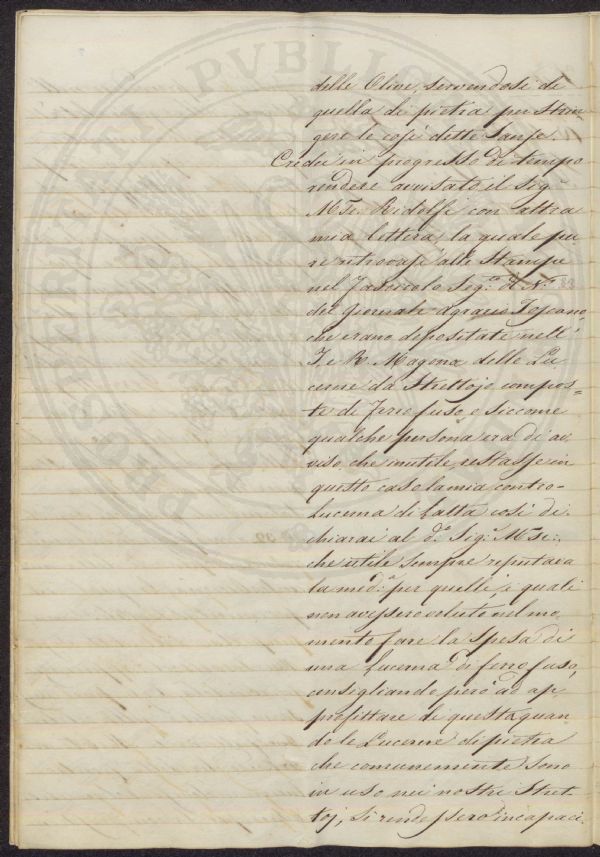 delle Olive, servendosi di
quella di pietra per strin
gere le così dette Sanse.
Credei in progresso di tempo
rendere avvisato il Sig.
Mse. Ridolfi con altra
mia lettera, la quale pu
re ritrovasi alle Stampe
nel Fascicolo Seg.º di N.º 33
del Giornale Agrario Toscano,
che erano depositate nell'
I. e R. Magona delle Lu
cerne da Strettojo compos=
te di Ferro fuso, e siccome
qualche persona era di av
viso, che inutile restasse in
questo caso la mia contro-
Lucerna di Latta così di
chiarai al d.º Sig.r Mse.:
che utile sempre reputava
la med.ª per quelli, i quali
non avessero voluto nel mo
mento fare la spesa di
una Lucerna di ferro fuso,
consigliando però ad ap
profittare di questa quan
do le Lucerne di pietra
che comunemente sono
in uso nei nostri Stret-
toj, si rendessero incapaci
PROSPERITATI PVBLICAE